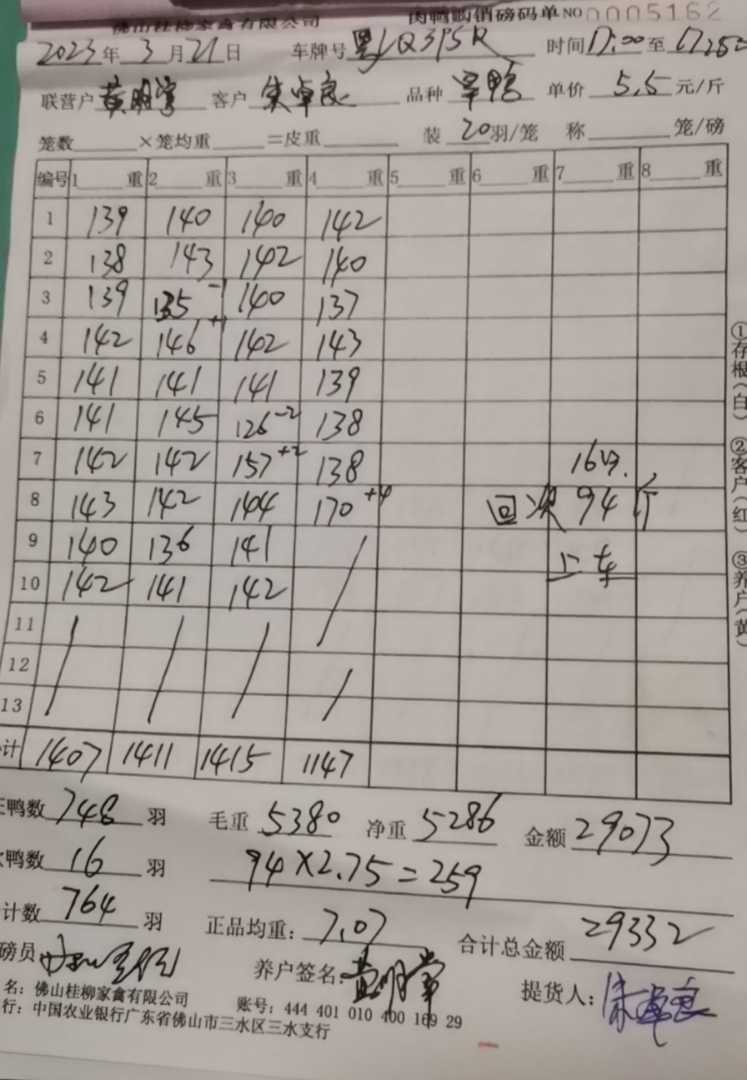 佛山桂柳家禽有限公司 肉鸭购销磅码单 NO 0005162
2023年3月21日 车牌号 粤 Q395R 时间 17:00 至
联营户 黄明掌 客户 朱卓良 品种 单价 5.5 元/斤
笼数 ×笼均重 =皮重 装 20 羽/笼 称 笼/磅
编号 1 重 2 重 3 重 4 重 5 重 6 重 7 重 8 重
1 139 140 140 142
2 138 143 142 140
3 139 135 -1 140 137
4 142 146 +1 142 143
5 141 141 141 139
6 141 145 126 -2 138
7 142 142 157 +2 138 16只
8 143 142 144 170 +4 回次 94斤
9 140 136 141 上车
10 142 141 142
11
12
13
计 1407 1411 1415 1147
鸭数 748 羽 毛重 5380 净重 5286 金额 29073
鸭数 16 羽 94×2.75=259
计数 764 羽 正品均重: 7.07 合计总金额 29332
磅员 养户签名: 黄明掌 提货人: 朱卓良
名: 佛山桂柳家禽有限公司 账号: 444 401 010 400 169 29
行: 中国农业银行广东省佛山市三水区三水支行
①存根(白) ②客户(红) ③养户(黄)